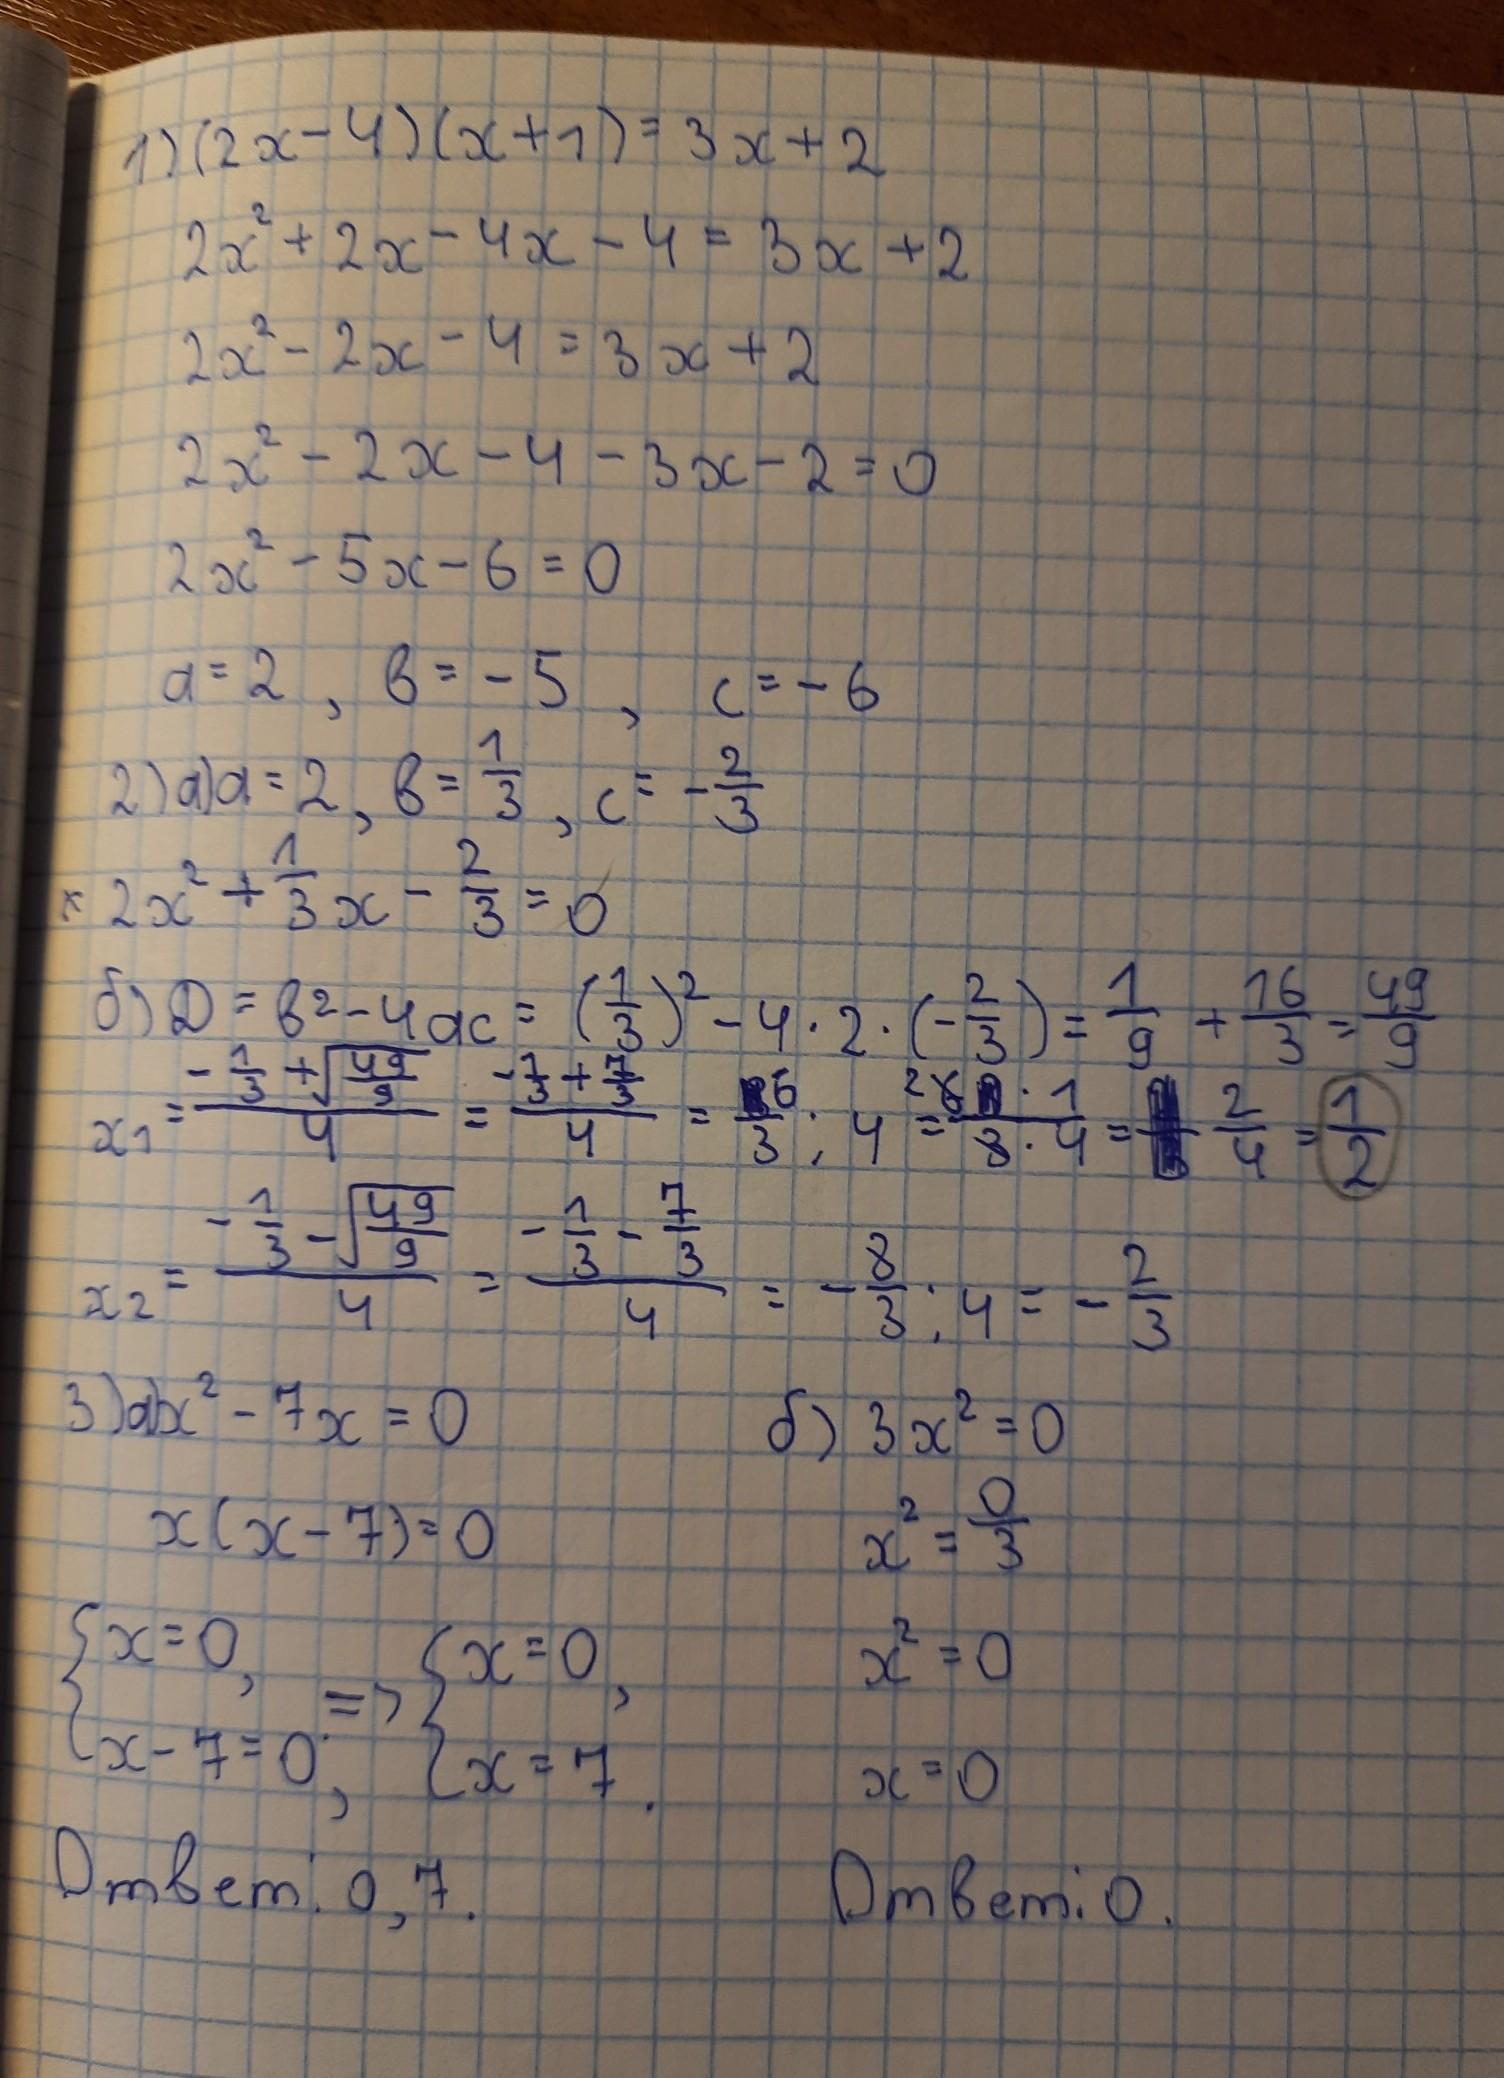 1) (2x-4)(x+1)=3x+2
2x²+2x-4x-4=3x+2
2x²-2x-4=3x+2
2x²-2x-4-3x-2=0
2x²-5x-6=0
a=2, в=-5, c=-6
2) а) a=2, в=1/3, c=-2/3
2x²+1/3x-2/3=0
б) D=в²-4ac=(1/3)²-4·2·(-2/3)=1/9+16/3=49/9
x1=(-1/3+√(49/9))/4=(-1/3+7/3)/4=6/3:4=(6·1)/(3·4)=2/4=1/2
x2=(-1/3-√(49/9))/4=(-1/3-7/3)/4=-8/3:4=-2/3
3) а) x²-7x=0 б) 3x²=0
x(x-7)=0 x²=0/3
{x=0, => {x=0, x²=0
x-7=0, x=7. x=0
Ответ: 0,7. Ответ: 0.